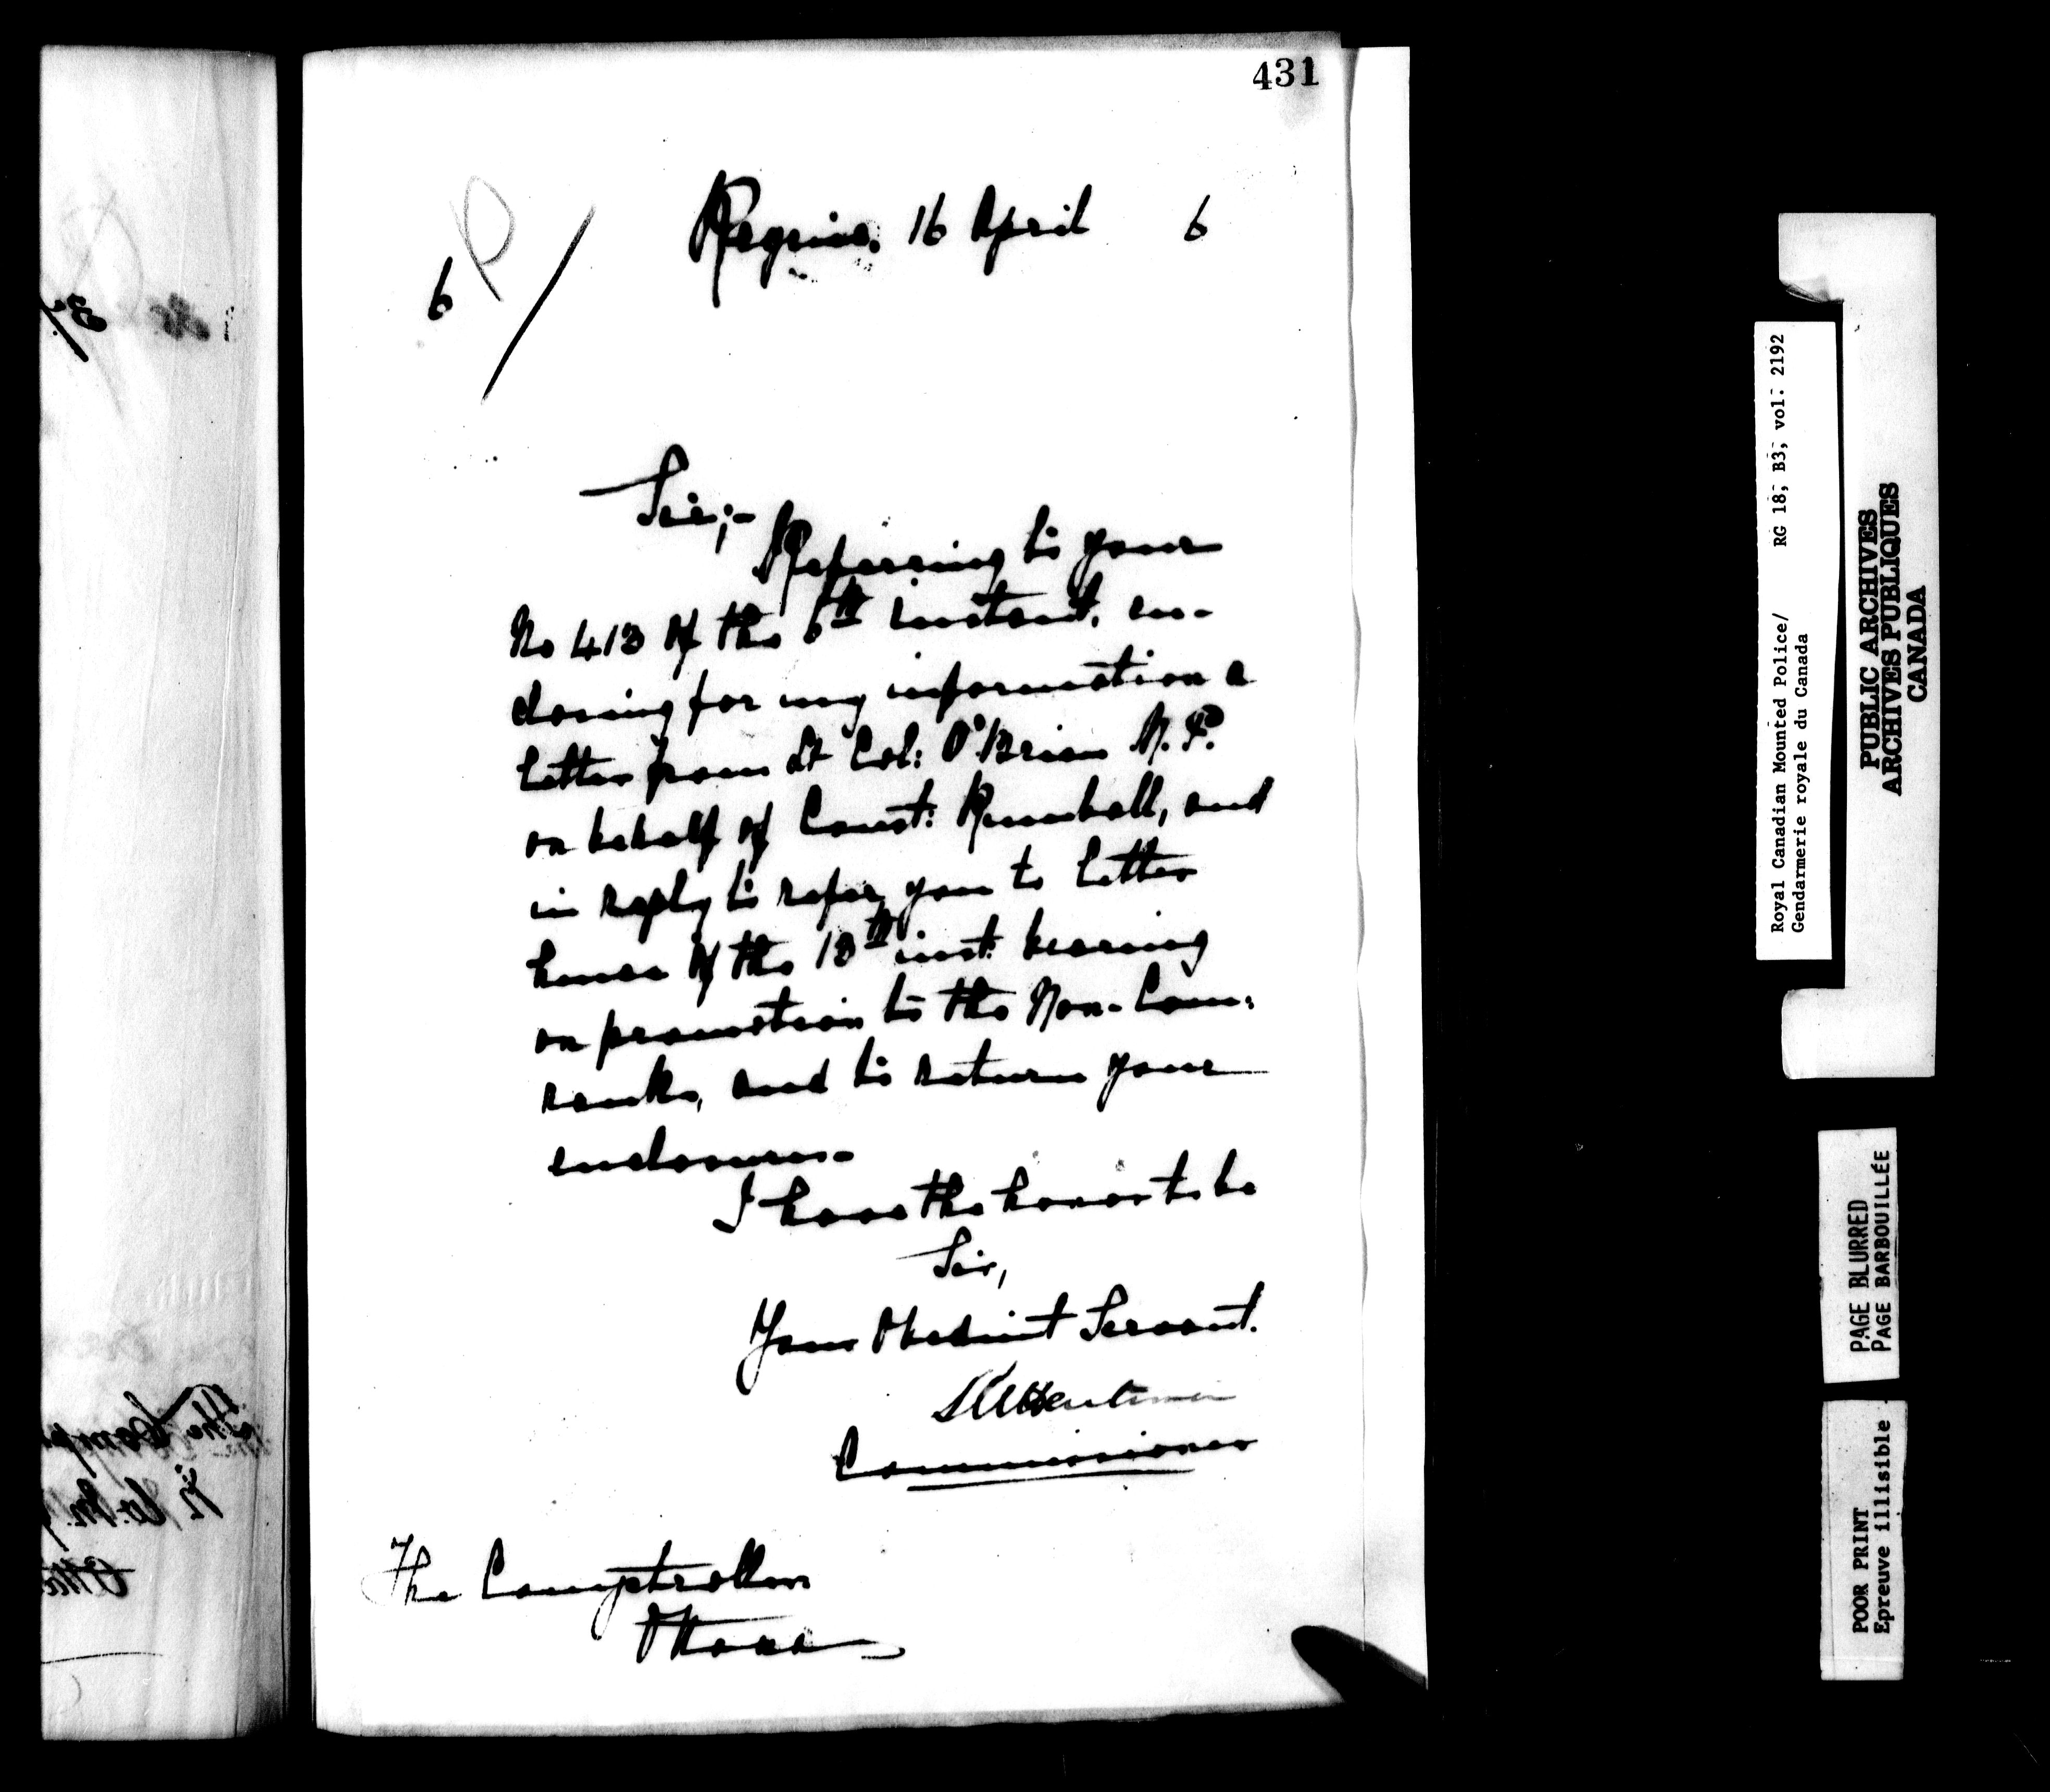 431
Regina. 16 April 6
6
Sir;-
Referring to your
No 413 of the 6th instant, en-
closing for my information a
letter from Lt Col: O'Brien M.P.
on behalf of Const: Rumball, and
in reply to refer you to letter
hence of the 13th inst: bearing
on promotion to the Non-Com:
ranks, and to return your
enclosures-
I have the honor to be
Sir,
Your Obedient Servant.
Commissioner
The Comptroller
Ottawa
Royal Canadian Mounted Police/ RG 18, B3, vol. 2192
Gendarmerie royale du Canada
PUBLIC ARCHIVES
ARCHIVES PUBLIQUES
CANADA
PAGE BLURRED
PAGE BARBOUILLÉE
POOR PRINT
Epreuve illisible